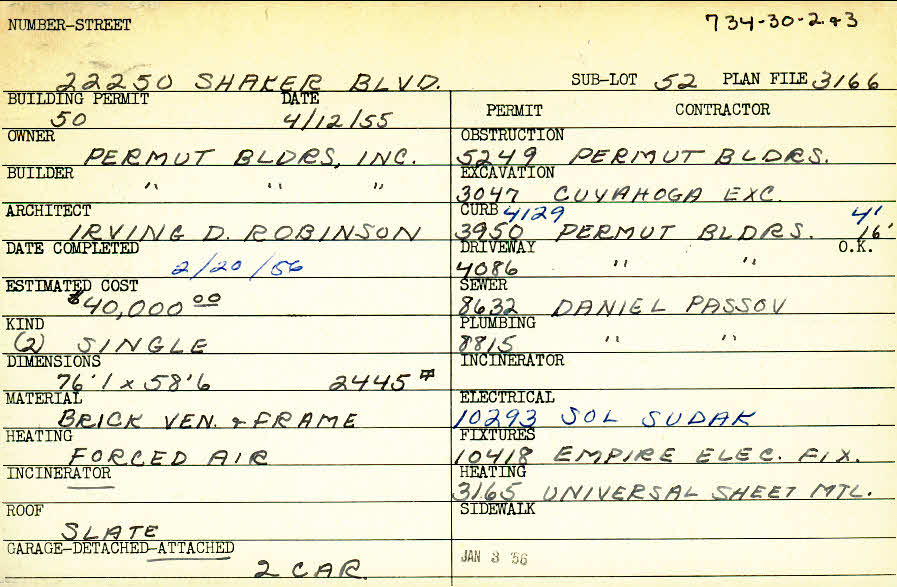 NUMBER-STREET 734-30-2&3
22250 SHAKER BLVD. SUB-LOT 52 PLAN FILE 3166
BUILDING PERMIT DATE
50 4/12/55
OWNER
PERMUT BLDRS, INC.
BUILDER
" " "
ARCHITECT
IRVING D. ROBINSON
DATE COMPLETED
2/20/56
ESTIMATED COST
$40,000 00
KIND
(2) SINGLE
DIMENSIONS
76'1 x 58'6 2445 #
MATERIAL
BRICK VEN. & FRAME
HEATING
FORCED AIR
INCINERATOR
ROOF
SLATE
GARAGE-DETACHED-ATTACHED
2 CAR
PERMIT CONTRACTOR
OBSTRUCTION
5249 PERMUT BLDRS.
EXCAVATION
3047 CUYAHOGA EXC.
CURB 4129 4'
3950 PERMUT BLDRS. 16'
DRIVEWAY O.K.
4086 " "
SEWER
8632 DANIEL PASSOV
PLUMBING
8815 " "
INCINERATOR
ELECTRICAL
10293 SOL SUDAK
FIXTURES
10418 EMPIRE ELEC. FIX.
HEATING
3165 UNIVERSAL SHEET MTL.
SIDEWALK
JAN 3 '56